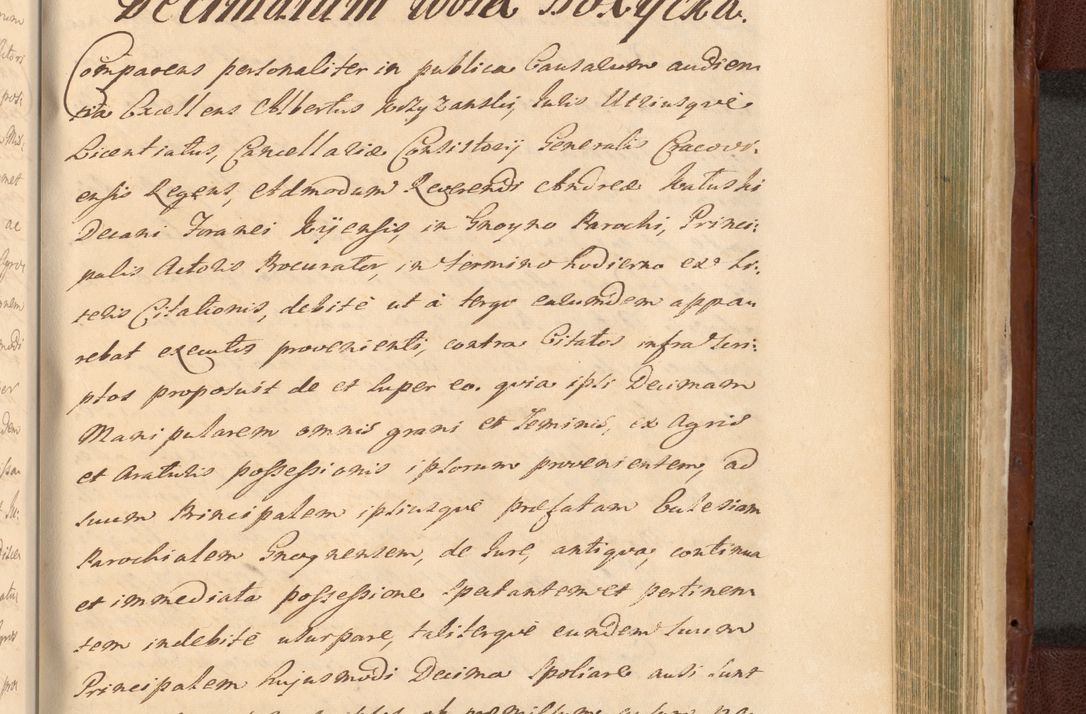 Decimarum Wola Bożycka.
Comparens personaliter in publica Causarum audien
tia Excellens Albertus Krzyzanski, Iuris Utriusque
Licentiatus, Cancellariæ Consistorij Generalis Cracovi.
ensis Regens, Admodum Reverendi Andreæ Ratuski
Decani Foranei Kijensis, in Gnoyno Parochi, Princi:
palis Actoris Procurator, in termino hodierno ex Li:
teris Citationis, debitè ut à tergo earumdem appa
rebat executis provenienti, contra Citatos infra Scri:
ptos proposuit de et super eo. quia ipsi Decimam
Manipularem omnis grani et Seminis, ex Agris
et Araturis possessionis ipsorum provenientem, ad
suum Principalem ipsiusque præfatam Ecclesiam
Parochialem Gnoynensem, de Iure, antiqua, continua
et immediata possessione spectantem et pertinen
tem indebitè usurpare, taliterque eundem suum
Principalem hujusmodi Decima Spoliare ausi sunt